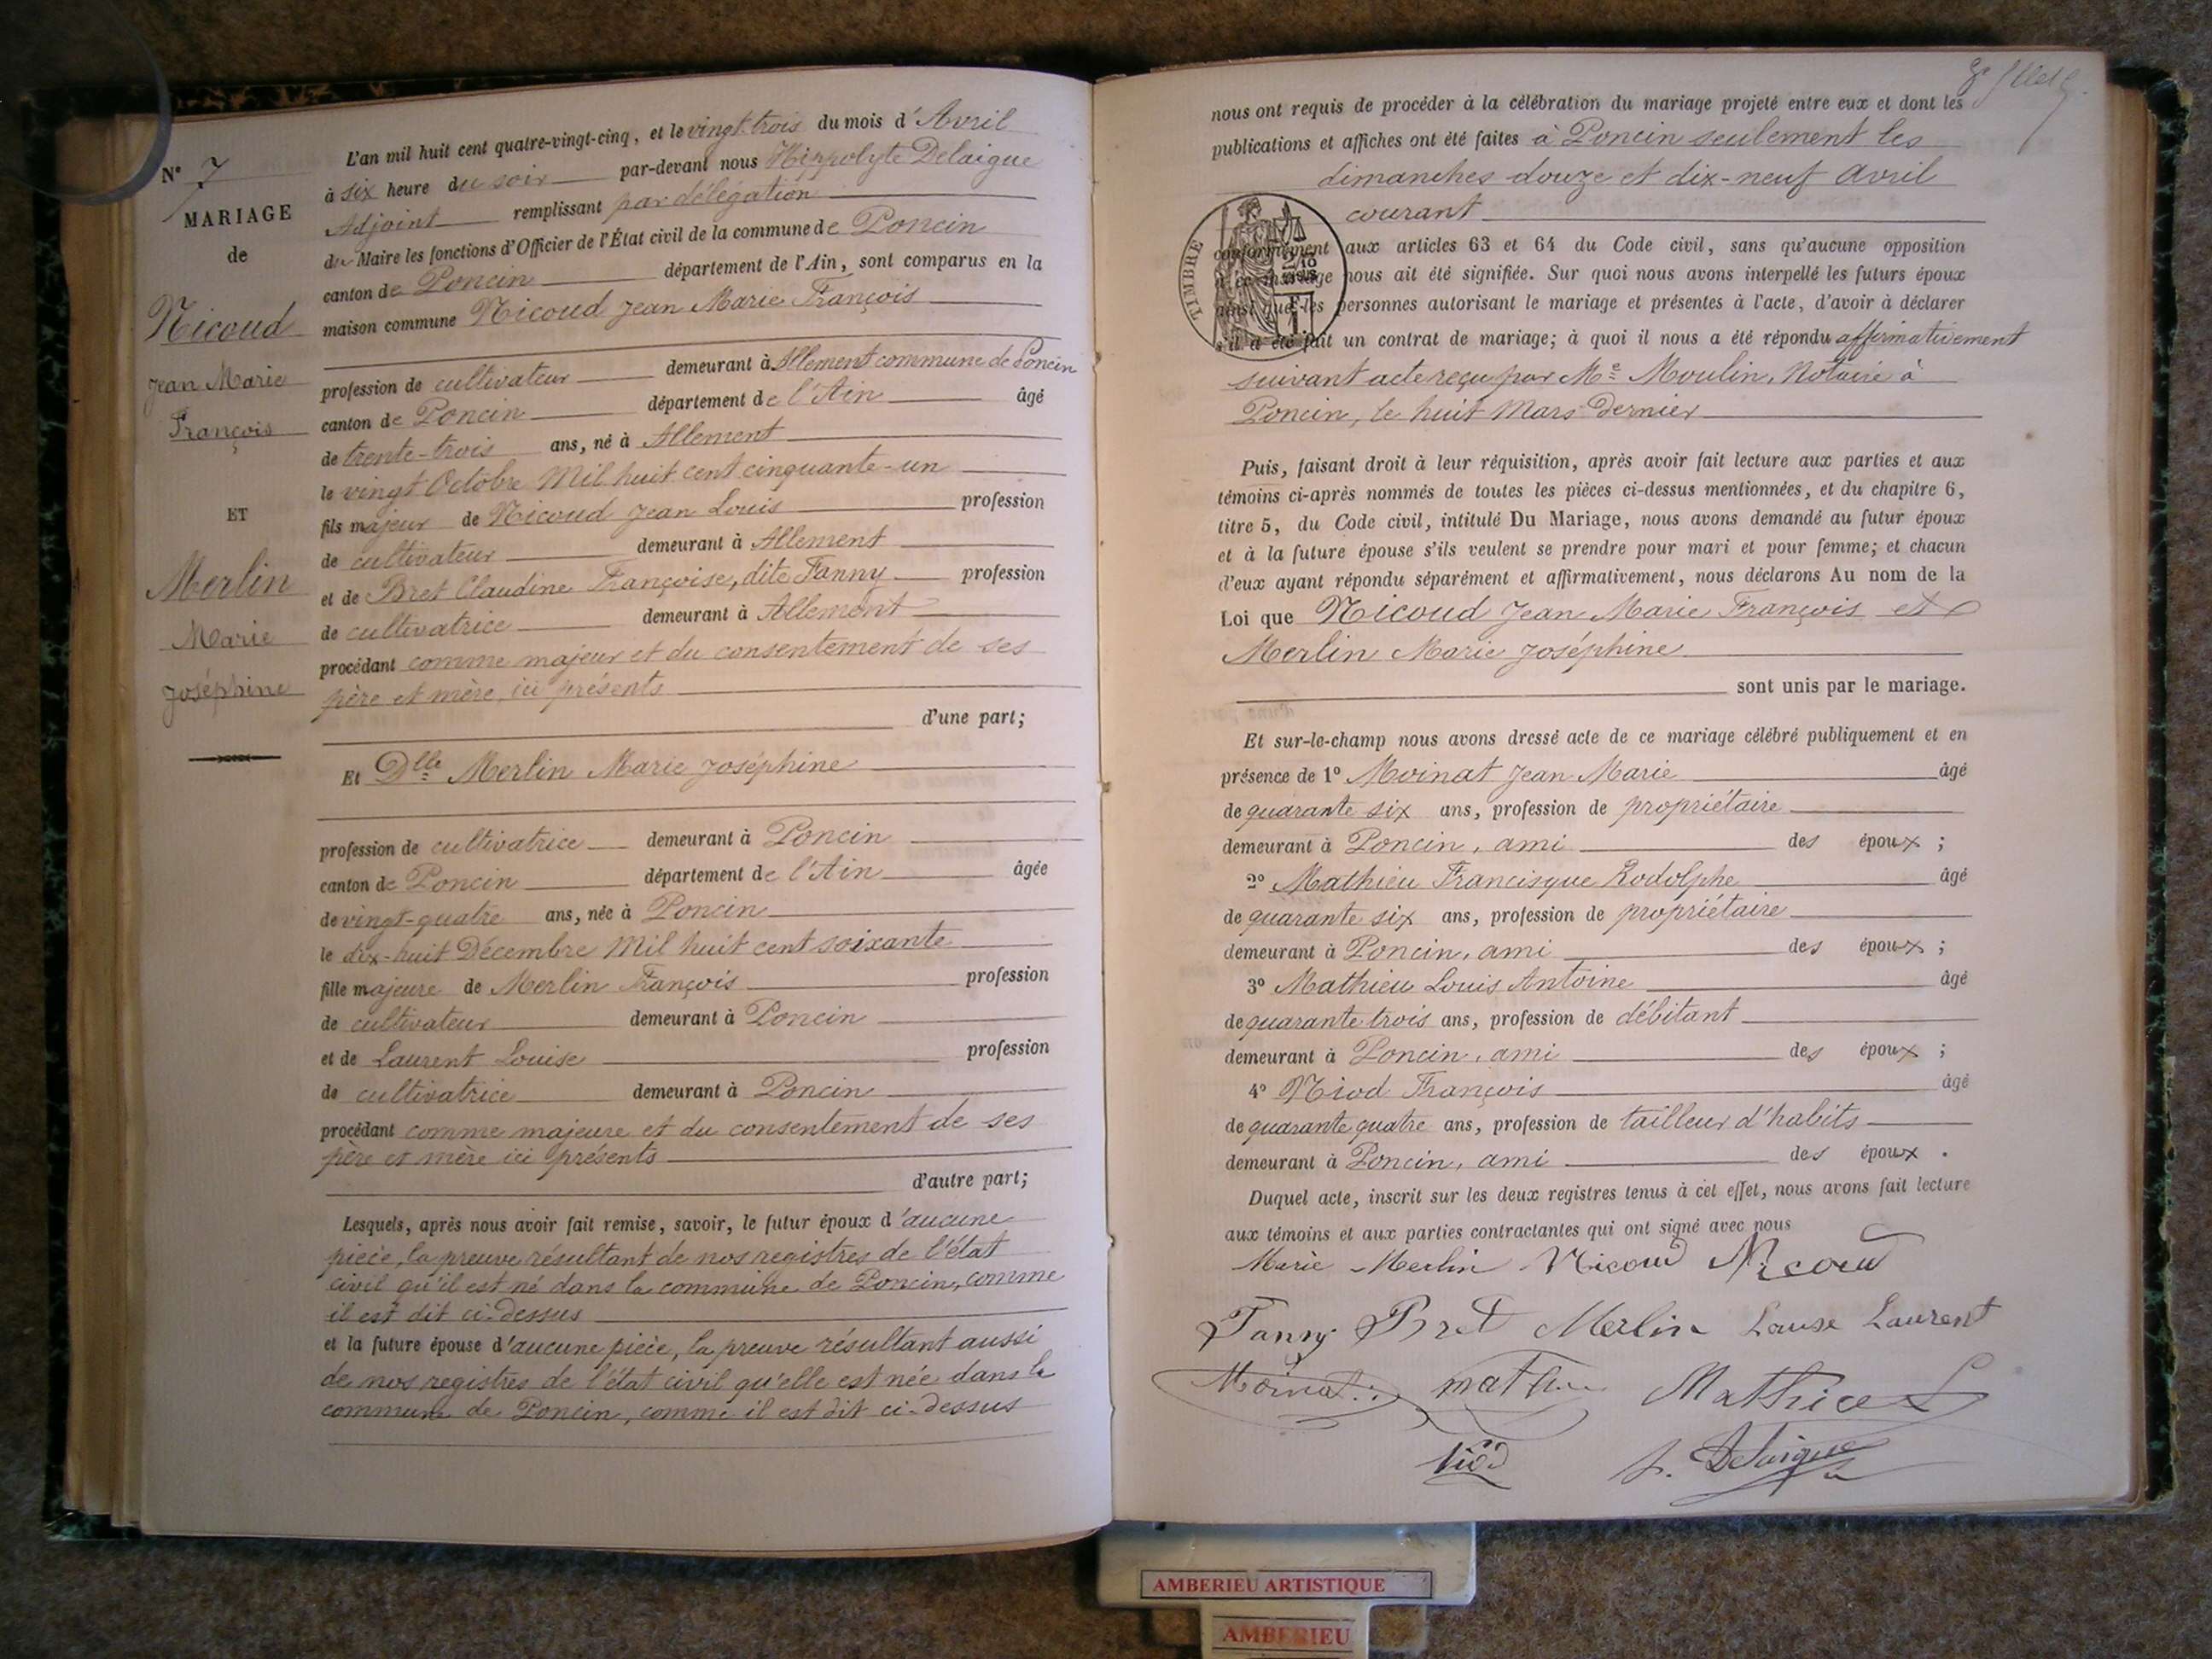 N° 7
MARIAGE
de
Nicoud
Jean Marie
François
ET
Merlin
Marie
Joséphine
L'an mil huit cent quatre-vingt-cinq, et le vingt-trois du mois d'Avril
à six heure du soir par-devant nous Hippolyte Delaigue
Adjoint remplissant par délégation
du Maire les fonctions d'Officier de l'État civil de la commune de Poncin
canton de Poncin département de l'Ain, sont comparus en la
maison commune Nicoud Jean Marie François
profession de cultivateur demeurant à Allement commune de Poncin
canton de Poncin département de l'Ain âgé
de trente-trois ans, né à Allement
le vingt Octobre Mil huit cent cinquante-un
fils majeur de Nicoud Jean Louis profession
de cultivateur demeurant à Allement
et de Bret Claudine Françoise, dite Fanny profession
de cultivatrice demeurant à Allement
procédant comme majeur et du consentement de ses
père et mère ici présents
d'une part;
Et Dlle Merlin Marie Joséphine
profession de cultivatrice demeurant à Poncin
canton de Poncin département de l'Ain âgée
de vingt-quatre ans, née à Poncin
le dix-huit Décembre Mil huit cent soixante
fille majeure de Merlin François profession
de cultivateur demeurant à Poncin
et de Laurent Louise profession
de cultivatrice demeurant à Poncin
procédant comme majeure et du consentement de ses
père et mère ici présents
d'autre part;
Lesquels, après nous avoir fait remise, savoir, le futur époux d'aucune
pièce, la preuve résultant de nos registres de l'état
civil qu'il est né dans la commune de Poncin, comme
il est dit ci-dessus
et la future épouse d'aucune pièce, la preuve résultant aussi
de nos registres de l'état civil qu'elle est née dans la
commune de Poncin, comme il est dit ci-dessus
nous ont requis de procéder à la célébration du mariage projeté entre eux et dont les
publications et affiches ont été faites à Poncin seulement les
dimanches douze et dix-neuf avril
courant
TIMBRE
conformément aux articles 63 et 64 du Code civil, sans qu'aucune opposition
à ce mariage nous ait été signifiée. Sur quoi nous avons interpellé les futurs époux
ainsi que les personnes autorisant le mariage et présentes à l'acte, d'avoir à déclarer
s'il a été fait un contrat de mariage; à quoi il nous a été répondu affirmativement
suivant acte reçu par Me Moulin, Notaire à
Poncin, le huit Mars dernier
Puis, faisant droit à leur réquisition, après avoir fait lecture aux parties et aux
témoins ci-après nommés de toutes les pièces ci-dessus mentionnées, et du chapitre 6,
titre 5, du Code civil, intitulé Du Mariage, nous avons demandé au futur époux
et à la future épouse s'ils veulent se prendre pour mari et pour femme; et chacun
d'eux ayant répondu séparément et affirmativement, nous déclarons Au nom de la
Loi que Nicoud Jean Marie François et
Merlin Marie Joséphine
sont unis par le mariage.
Et sur-le-champ nous avons dressé acte de ce mariage célébré publiquement et en
présence de 1° Moinat Jean Marie âgé
de quarante six ans, profession de propriétaire
demeurant à Poncin, ami des époux ;
2° Mathieu Francisque Rodolphe âgé
de quarante six ans, profession de propriétaire
demeurant à Poncin, ami des époux ;
3° Mathieu Louis Antoine âgé
de quarante trois ans, profession de débitant
demeurant à Poncin, ami des époux ;
4° Niod François âgé
de quarante quatre ans, profession de tailleur d'habits
demeurant à Poncin, ami des époux .
Duquel acte, inscrit sur les deux registres tenus à cet effet, nous avons fait lecture
aux témoins et aux parties contractantes qui ont signé avec nous
Marie Merlin Nicoud Nicoud
Fanny Bret Merlin Louise Laurent
Moinat Mathieu Mathieu L
Niod h. Delaigue
AMBERIEU ARTISTIQUE
AMBERIEU